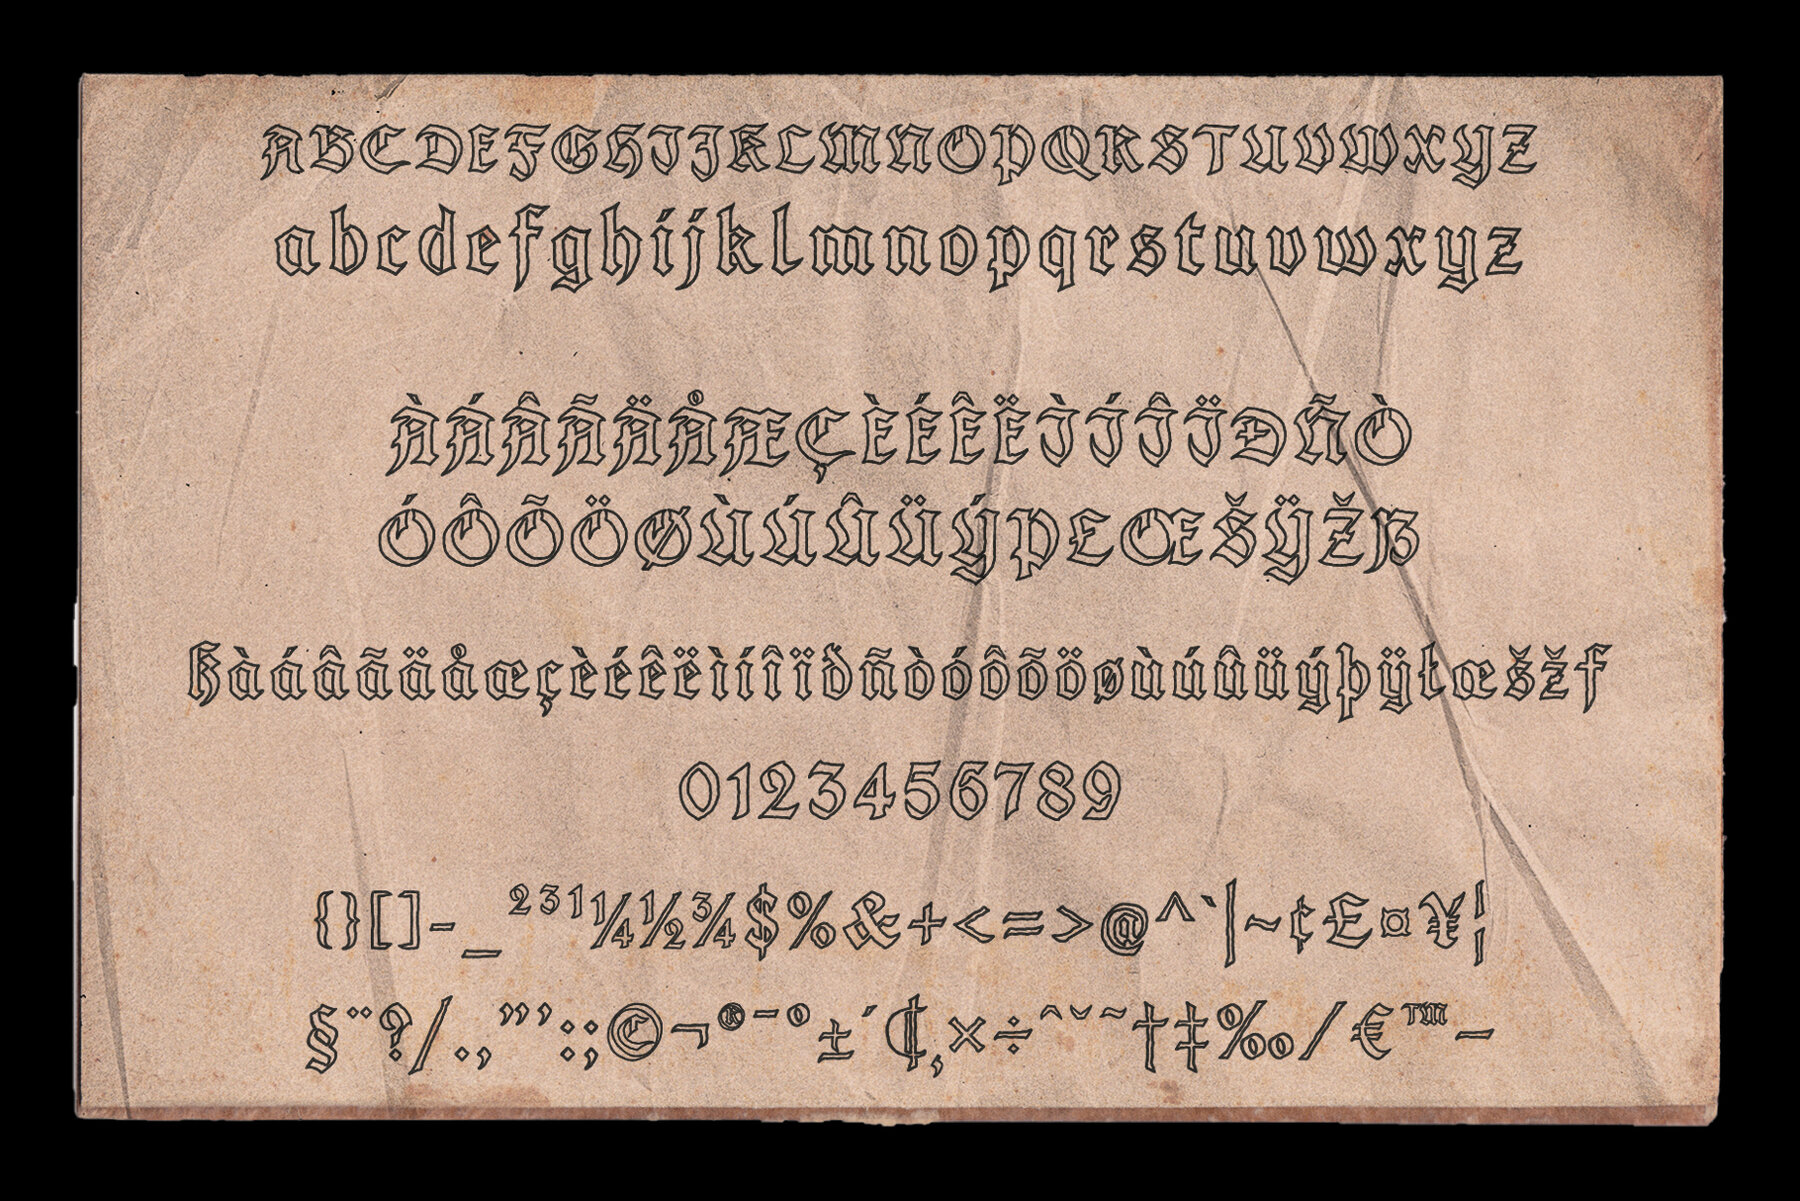 ABCDEFGHIJKLMNOPQRSTUVWXYZ
abcdefghijklmnopqrstuvwxyz
ÀÁÂÃÄÅÆÇÈÉÊËÌÍÎÏÐÑÒ
ÓÔÕÖØÙÚÛÜÝÞŁŒŠŸŽẞ
ßàáâãäåæçèéêëìíîïðñòóôõöøùúûüýþÿłœšžƒ
0123456789
{}[]-_²³¹¼½¾$%&+<=>@^`|~¢£¤¥¦
§¨?/.,”’:;©¬®¯º±´¶¸×÷ˆˇ˜†‡‰⁄€™−